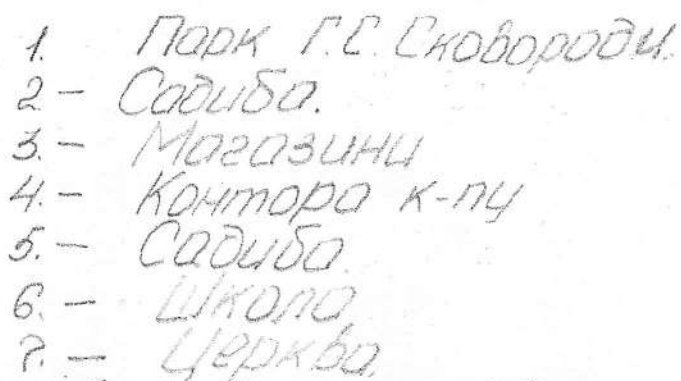 1. Парк Г.С. Сковороди.
2 - Садиба.
3. - Магазини
4. - Контора к-пу
5. - Садиба
6. - Школа
7. - Церква.